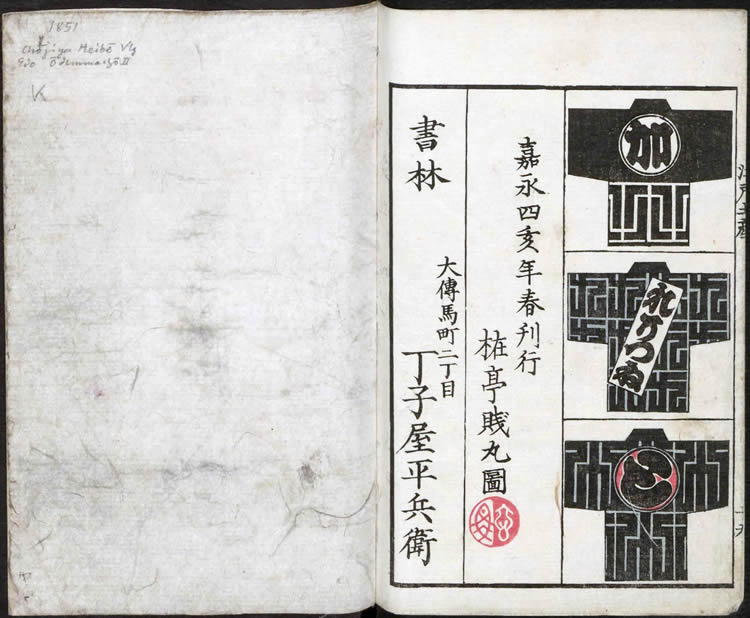 1851
Chōjiya Heibē Vlg
Edo Ōdemmachō II
K
加
嘉永四亥年春刊行
亭賎丸圖
書林
大傳馬町二丁目
丁子屋平兵衛